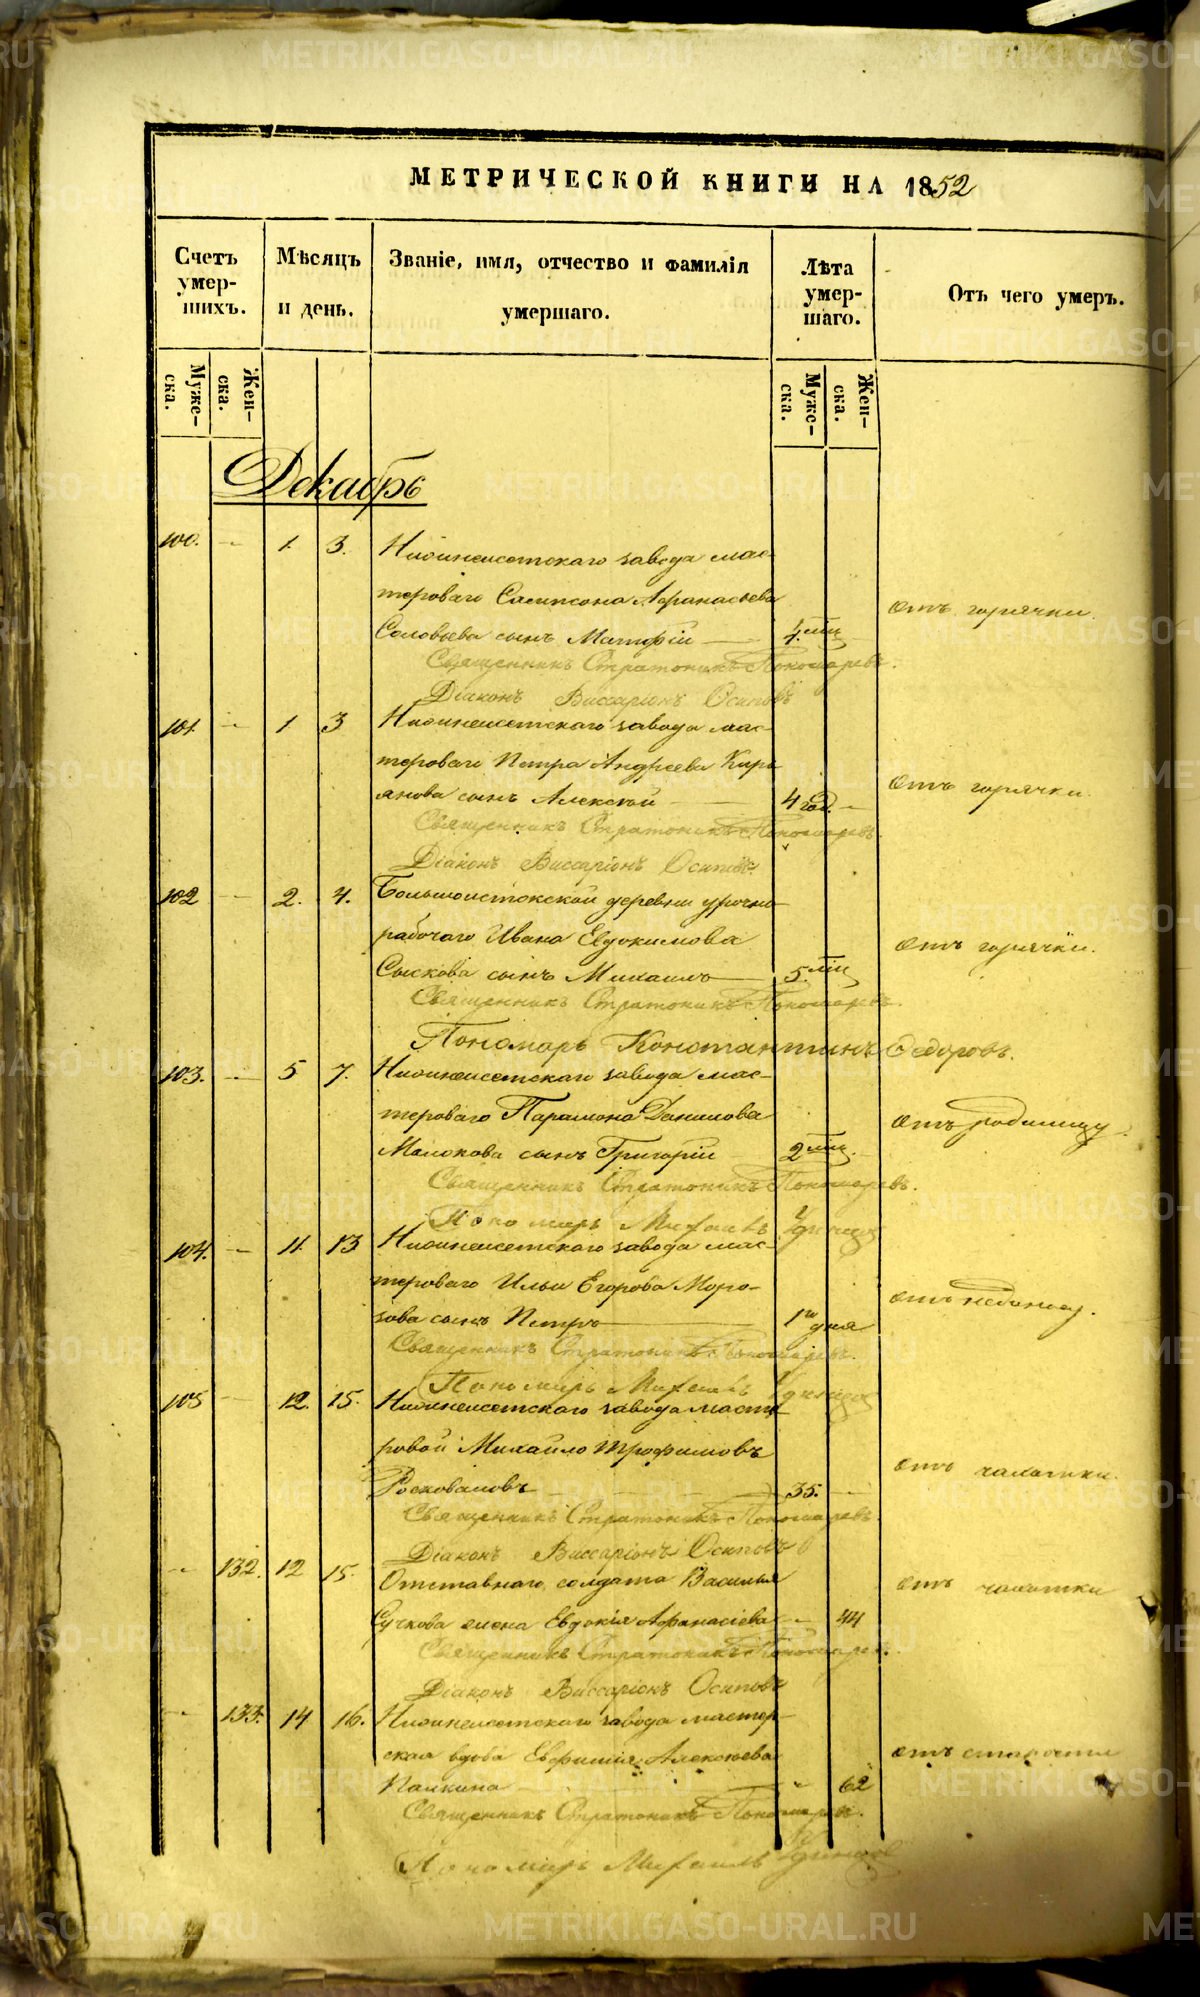 МЕТРИЧЕСКОЙ КНИГИ НА 1852
Счетъ умер-шихъ.
Мѣсяцъ и день.
Званіе, имя, отчество и фамилія умершаго.
Лѣта умер-шаго.
Отъ чего умеръ.
Муже-ска.
Жен-ска.
Муже-ска.
Жен-ска.
Декабрь
100. 1. 3. Нижнеисетскаго завода мас-
тероваго Сампсона Афанасьева отъ горячки
Соловьева сынъ Матфій 4. мѣ
Священникъ Стратоникъ Пономаревъ.
Діаконъ Виссаріонъ Осиповъ
101. 1 3 Нижнеисетскаго завода мас-
тероваго Петра Андреева Кирь отъ горячки.
янова сынъ Алексѣй 4 год.
Священникъ Стратоникъ Пономаревъ.
Діаконъ Виссаріонъ Осиповъ
102 2. 4. Большеистокской деревни урочно
рабочаго Ивана Евдокимова отъ горячки.
Сыскова сынъ Михаилъ 5. мѣ
Священникъ Стратоникъ Пономаревъ.
Пономарь Константинъ Федоровъ.
103. 5 7. Нижнеисетскаго завода мас-
тероваго Парамона Данилова отъ родимцу.
Малюкова сынъ Григорій 2 мѣ.
Священникъ Стратоникъ Пономаревъ.
Пономарь Михаилъ
104. 11. 13 Нижнеисетскаго завода мас-
тероваго Ильи Егорова Моро-
зова сынъ Петръ 1го дня
Священникъ Стратоникъ Пономаревъ.
Пономарь Михаилъ
105 12. 15. Нижнеисетскаго завода масте
ровой Михайло Трофимовъ отъ чахотки.
Росковаловъ 35.
Священникъ Стратоникъ Пономаревъ.
Діаконъ Виссаріонъ Осиповъ
132. 12 15. Отставнаго солдата Василья отъ чахотки
Сучкова жена Евдокія Афанасіева 44
Священникъ Стратоникъ Пономаревъ.
Діаконъ Виссаріонъ Осиповъ
133. 14 16. Нижнеисетскаго завода мастер-
ская вдова Евфимія Алексѣева отъ старости
Палкина 62
Священникъ Стратоникъ Пономаревъ.
Пономарь Михаилъ
METRIKI.GASO-URAL.RU